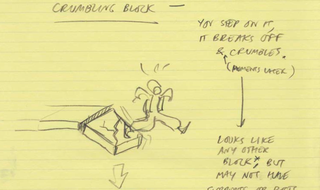 CRUMBLING BLOCK —
YOU STEP ON IT,
IT BREAKS OFF
& CRUMBLES.
(MOMENTS LATER)
LOOKS LIKE
ANY OTHER
BLOCK*, BUT
MAY NOT HAVE